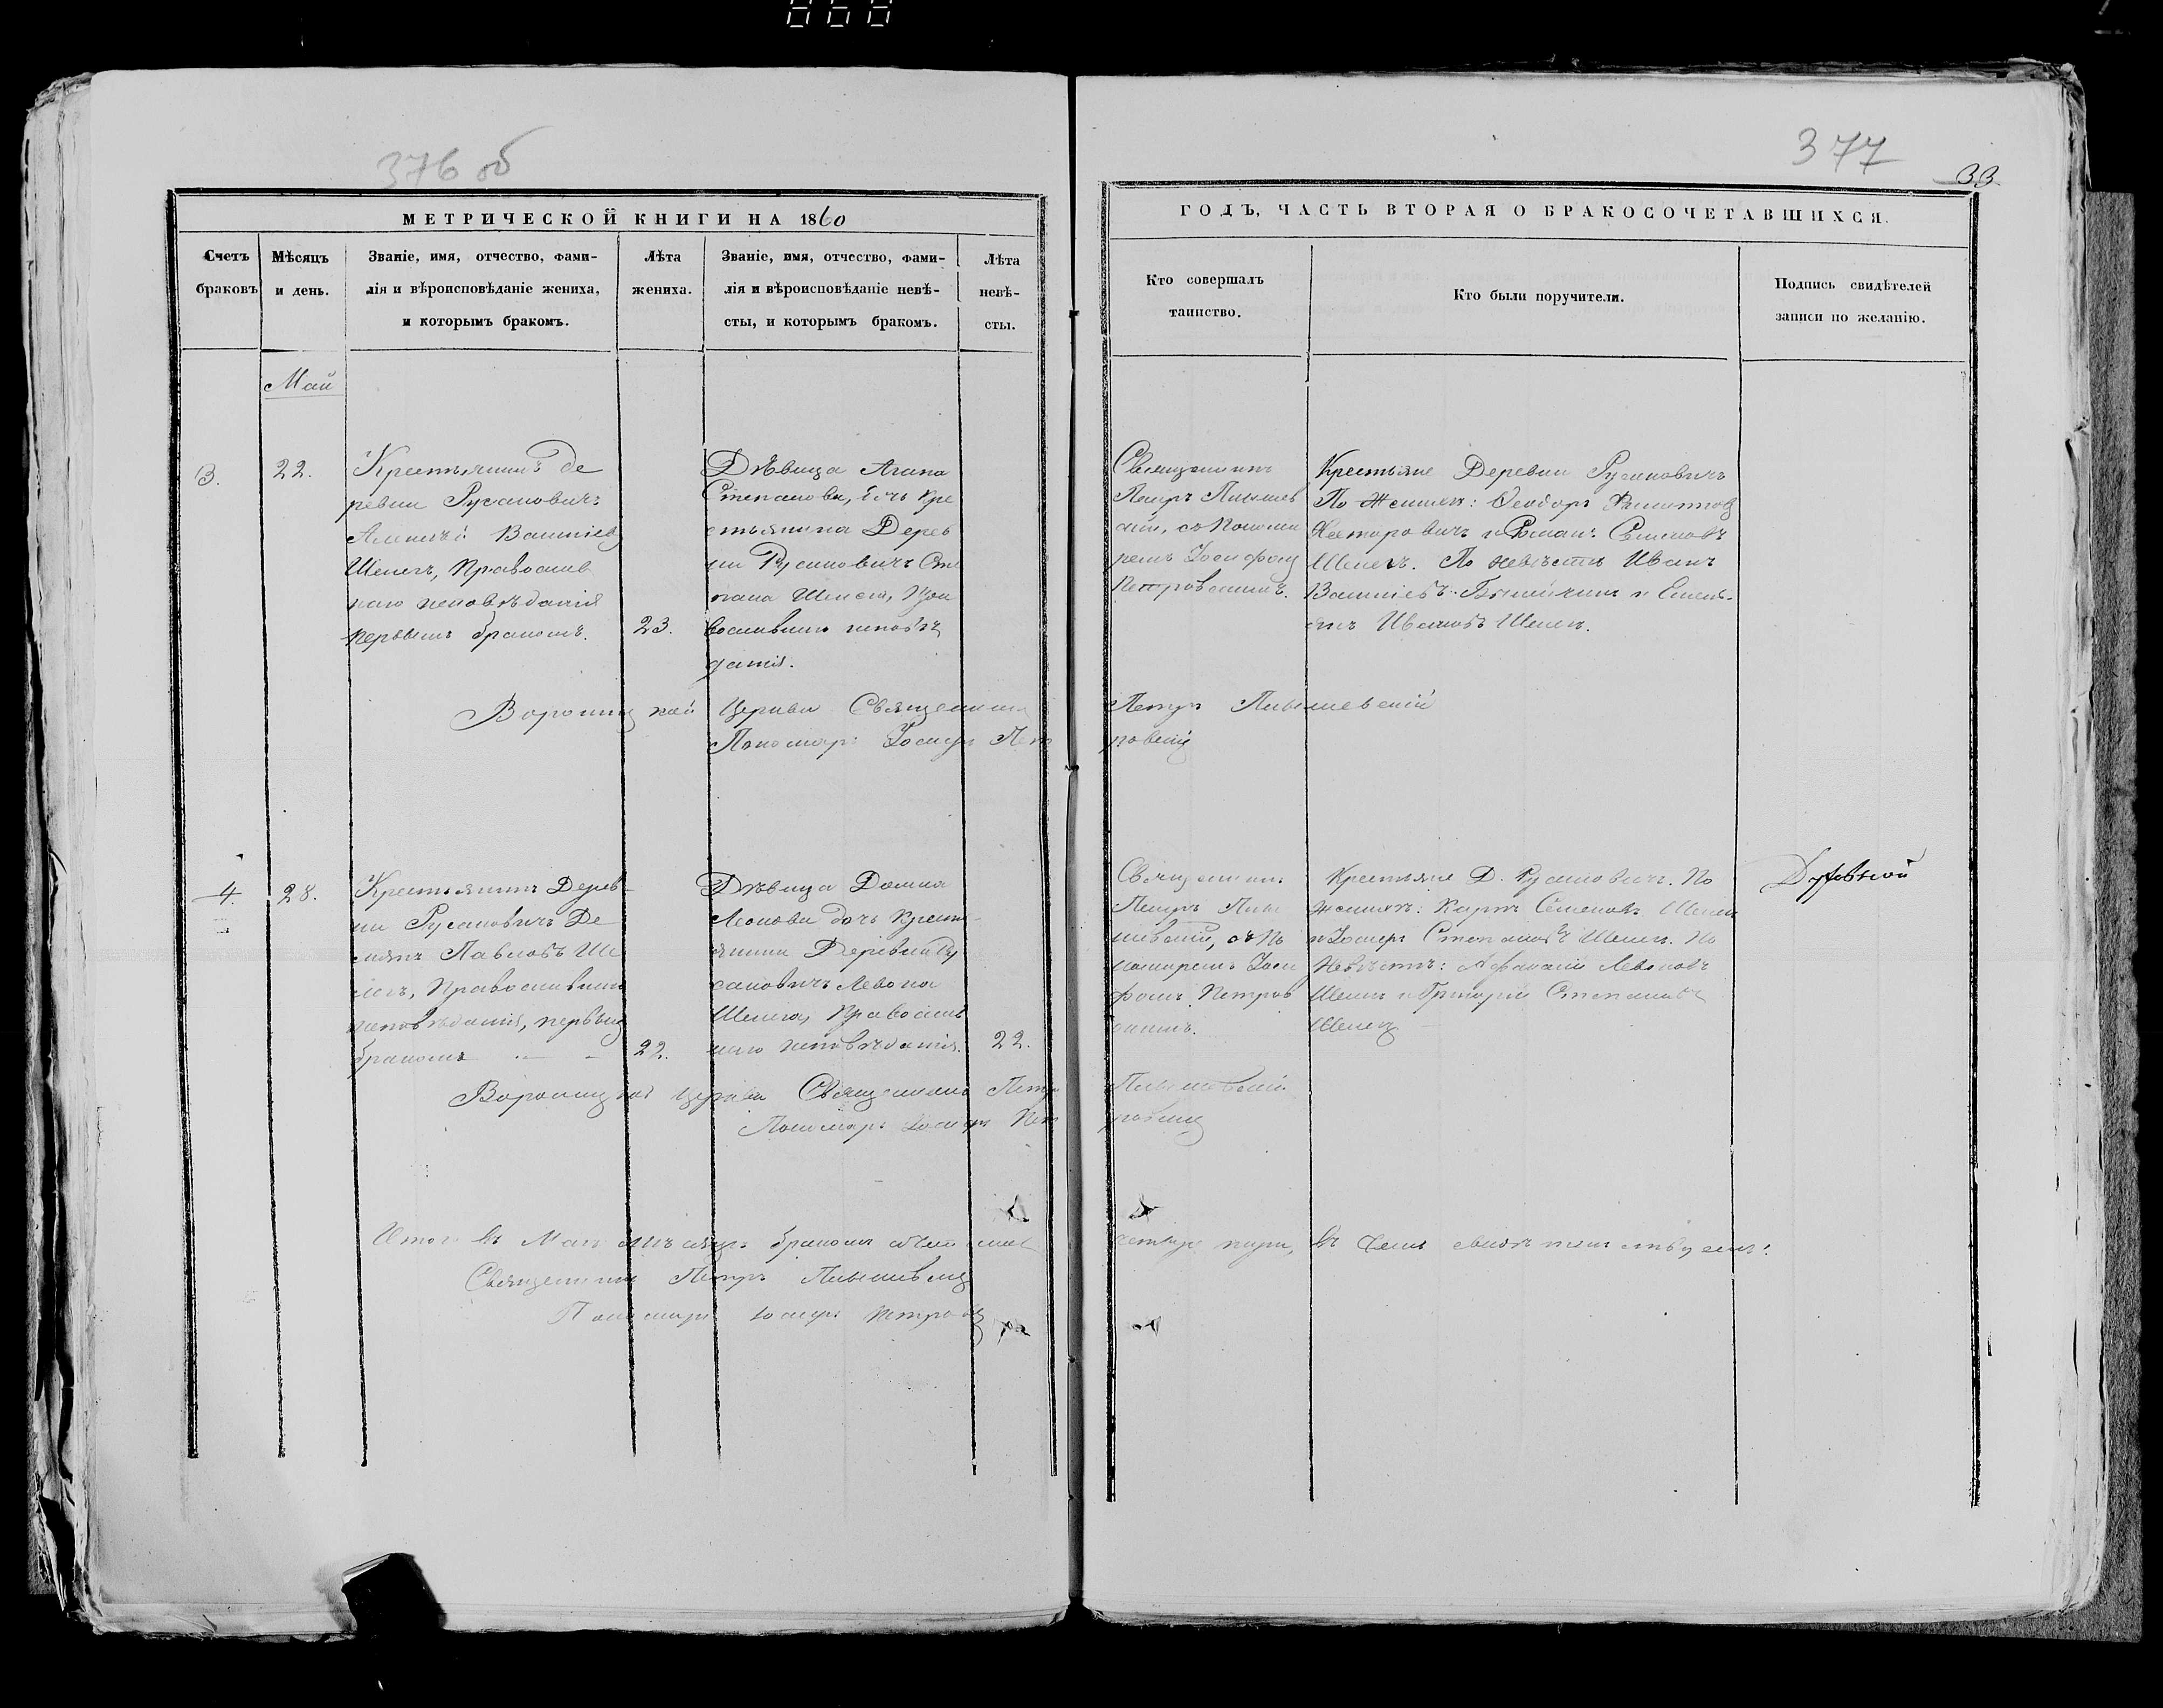 868
376 об
377
33
МЕТРИЧЕСКОЙ КНИГИ НА 1860
ГОДЪ, ЧАСТЬ ВТОРАЯ О БРАКОСОЧЕТАВШИХСЯ.
Счетъ
браковъ
Мѣсяцъ
и день.
Званіе, имя, отчество, фами-
лія и вѣроисповѣданіе жениха,
и которымъ бракомъ.
Лѣта
жениха.
Званіе, имя, отчество, фами-
лія и вѣроисповѣданіе невѣ-
сты, и которымъ бракомъ.
Лѣта
невѣ-
сты.
Кто совершалъ
таинство.
Кто были поручители.
Подпись свидѣтелей
записи по желанію.
Май
3.
22.
Крестьянинъ Де
ревни Русановичъ
Шелегъ, Православ
наго исповѣданія
первымъ бракомъ.
23.
Дѣвица Агапа
Степанова, дочь кре
стьянина Дерев
ни Русановичъ Сте
пана Шелега, Пра
вославнаго исповѣ
данія.
Священникъ
Петръ
съ Понома
ремъ Іосифомъ
Петровскимъ.
Крестьяне Деревни Русановичъ
По Женихѣ: Ѳеодоръ
и Романъ Семеновъ
Шелегъ. По невѣстѣ Иванъ
Василіевъ и Емель-
янъ Ивановъ Шелегъ.
Церкви Священникъ
Пономарь Іосифъ Пет
Петръ
ровскій
4.
28.
Крестьянинъ Дерев-
ни Русановичъ Де
мянъ Павловъ Ше
легъ, Православнаго
исповѣданія, первымъ
бракомъ
22.
Дѣвица Домна
Леонова дочь крестъ-
янина Деревни Ру
сановичъ Левона
Шелега, Православ
наго исповѣданія.
22.
Священникъ
Петръ
съ По
номаремъ Іоси
фомъ Петров
скимъ.
Крестьяне Д. Русановичъ. По
женихѣ: Карпъ Семеновъ Шелегъ
и Іосифъ Степановъ Шелегъ. По
Невѣстѣ: Афанасій Левоновъ
Шелегъ и Григорій Степановъ
Шелегъ
Церкви Священникъ Петръ
Пономарь Іосифъ Пет
ровскій
Итого въ Маѣ мѣсяцѣ бракомъ
четыре пары, въ чемъ свидѣтельствуемъ:
Священникъ Петръ
Пономарь Іосифъ Петровскій